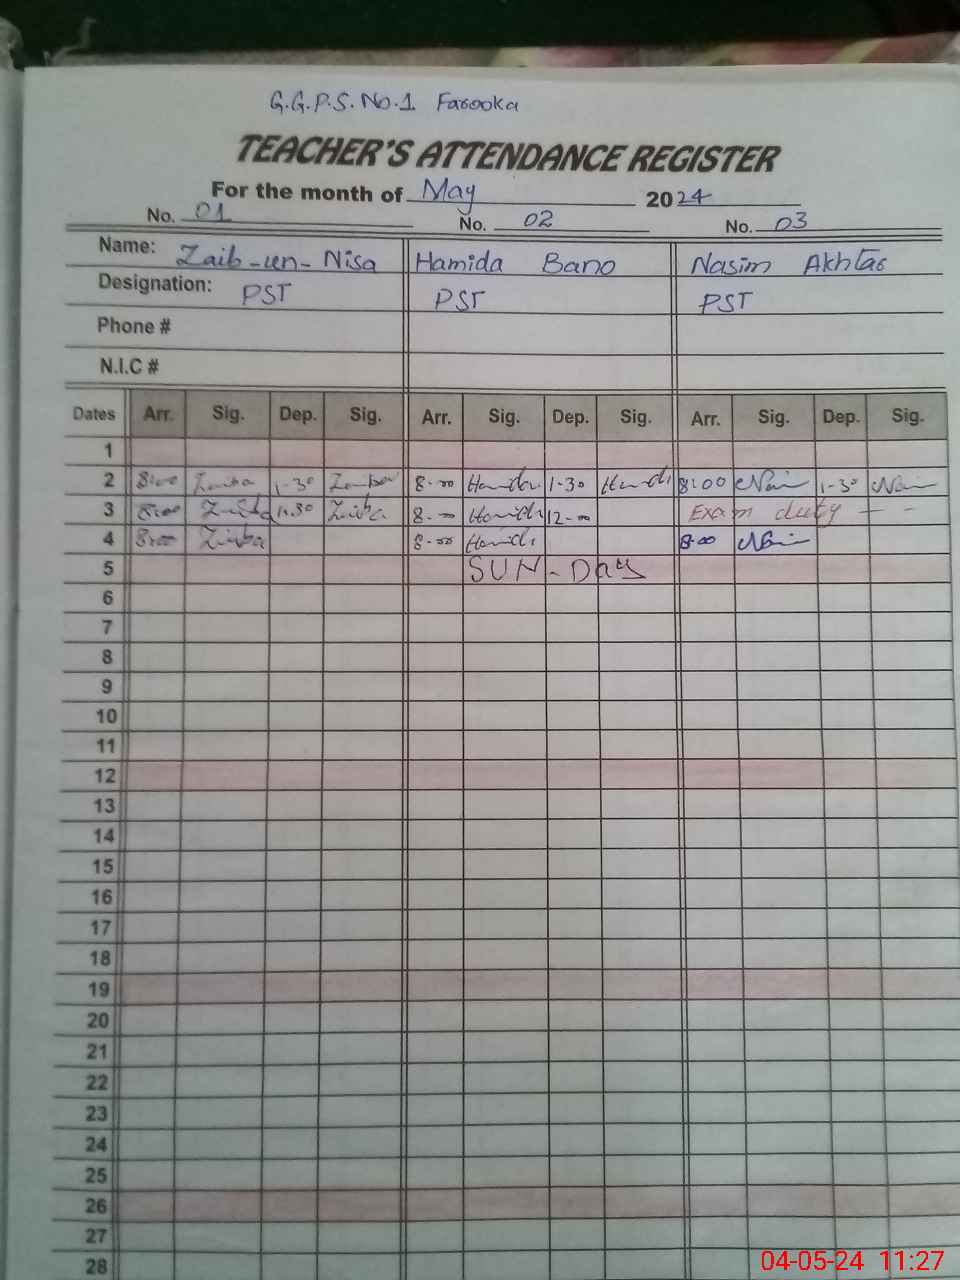 G.G.P.S. No.1 Farooka
TEACHER'S ATTENDANCE REGISTER
For the month of May 2024
No. 01 No. 02 No. 03
Name: Zaib-un-Nisa Hamida Bano Nasim Akhtar
Designation: PST PST PST
Phone #
N.I.C #
Dates Arr. Sig. Dep. Sig. Arr. Sig. Dep. Sig. Arr. Sig. Dep. Sig.
1
2 8:00 1-30 8-00 1-30 8:00 1-30
3 8:00 11.30 8-00 12-00 Exam duty - -
4 8:00 8-00 8-00
5 SUN-Day
6
7
8
9
10
11
12
13
14
15
16
17
18
19
20
21
22
23
24
25
26
27
28
04-05-24 11:27